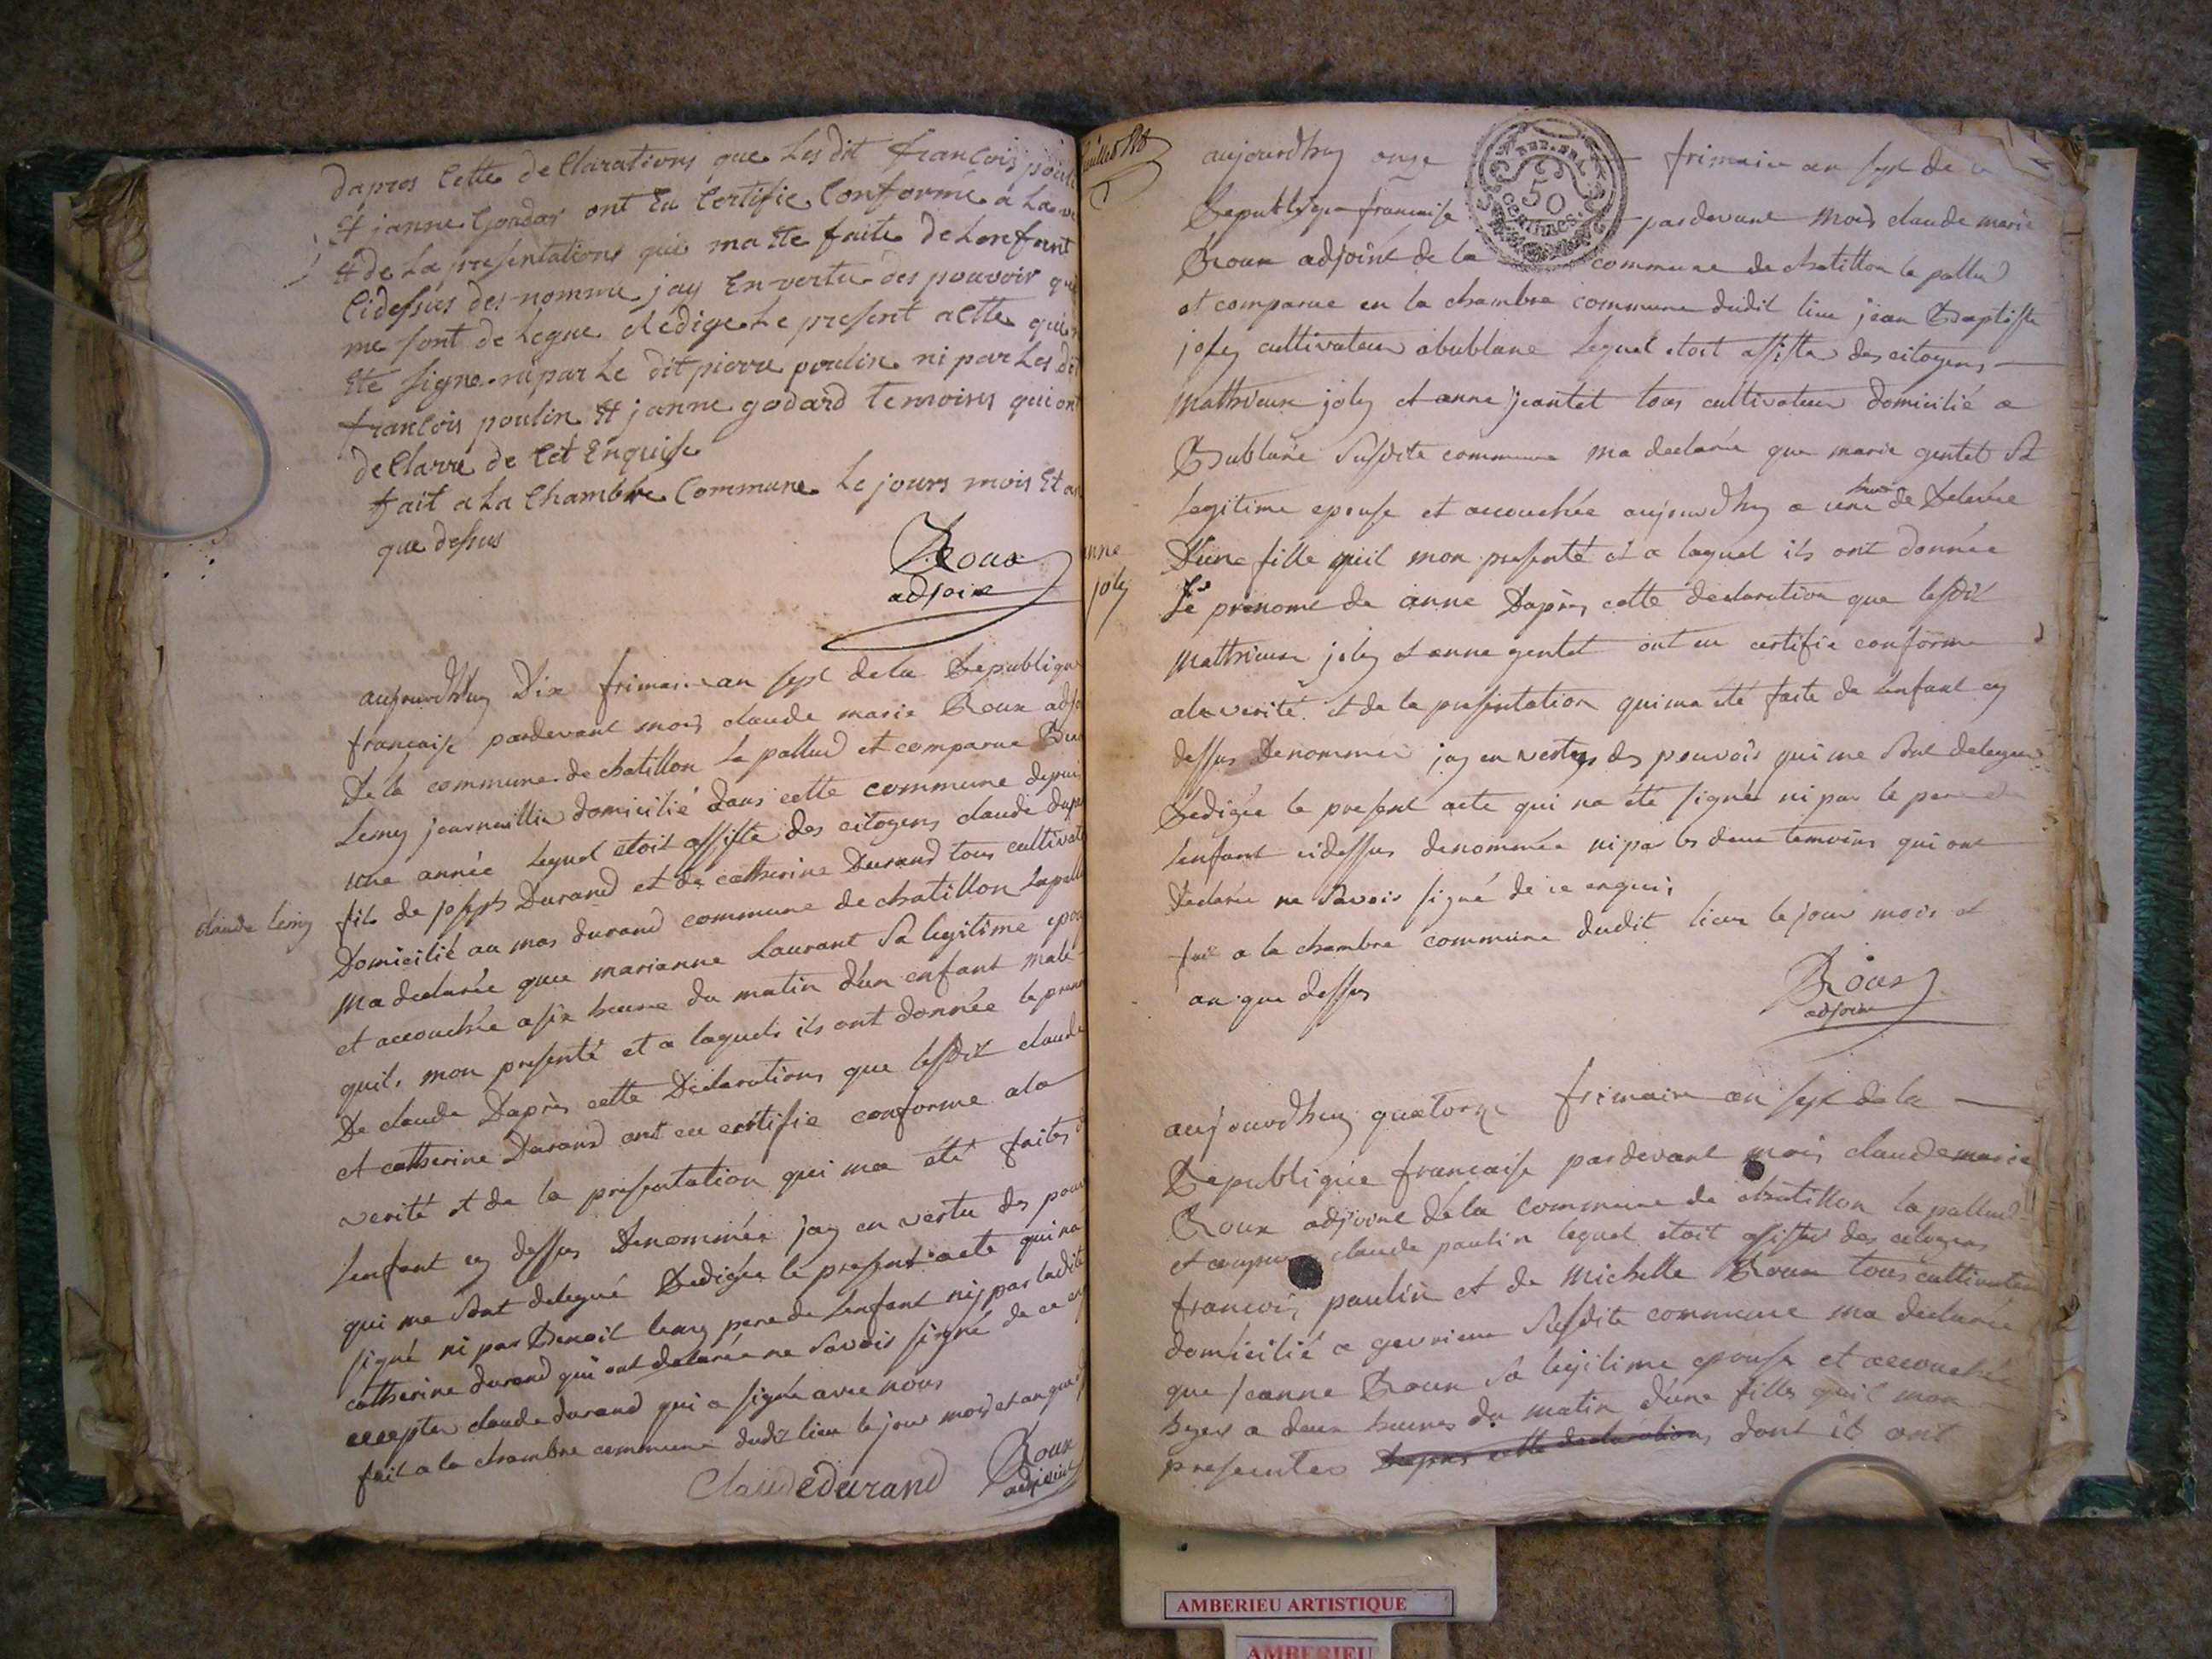 dapres Cette deClarations que Les dit francois
Et janne Godar ont Eu Certifie Conforme a La
Et de La presentations qui ma Ete faite de Lenfant
Cidessus des-nomme jay En vertu des pouvoir
me sont de Legue Redige Le present actte
Ete signe ni par Le dit pierre poulin ni par Les
francois poulin Et janne godard temoins qui ont
deClarre de Cet Enquise
fait a La Chambre Commune Le jours mois Et
que dessus
Roux
adjoin
aujourdhuy Dix frimaire an sept de la Republique
francaise pardevant mois claude marie Roux
De la commune de chatillon La pallud et comparue
Lemy journaillié domicilié dans cette commune depuis
une année Lequel etoit assiste des citoyens claude
claude lémy
fils de joseph Durand et de catherine Durand tous
Domicilié au mas durand commune de chatillon
Ma declarée que marianne Laurant Sa legitime
et accouchée a six heure du matin d'un enfant male
quils mon presenté et a laquels ils ont donnée le
De claude Daprès cette Déclarations que lesdit claude
et catherine Durand ont eu certifie conforme ala
verité et de la presentation qui ma été faites
Lenfant cy dessus Denommée jay en vertu des
qui me sont delegué Redigée le present acte
signé ni par Benoit lemy pere de Lenfant nij par ladite
catherine durand qui ont declarée ne Savoir signé de ce
excepter claude durand qui a signée avec nous
fait a la chambre commune dudit lieu le jour mois et an que
Claude durand
Roux
adjoint
feuillet
aujourdhuy onze frimaire an sept de
REP. FRA.
50
CENTIMES
Republique francaise pardevant mois claude marie
Roux adjoint de la commune de chatillon la pallud
et comparue en la chambre commune dudit lieu jean Baptiste
joly cultivateur abublane Lequel etoit assiste des citoyens
Mathieux joly et anne jeantet tous cultivateur domicilié a
Bublane Susdite commune ma declarée que marie gentet Sa
Legitime epouse et accouchée aujourdhuy a une heure de Relevée
D'une fille quil mon presenté et a laquel ils ont donnée
anne
joly
Le prenoms de anne Daprès cette declaration que lesdit
Mathieux joly et anne gentet ont eu certifie conforme
ala verité et de la presentation qui ma été faite de Lenfant cy
dessus Denommée jay en vertus des pouvoirs qui me sont delegué
Redigée le present acte qui na été signée ni par le pere de
Lenfant cidessus denommée ni par les deux temoins qui ont
Declarée ne Savoir signé de ce enquis
fait a la chambre commune dudit lieux le jour mois et
an que dessus
Roux
adjoint
aujourdhuy quatorze frimaire an sept de la
Republique francaise pardevant mois claude marie
Roux adjoint de la commune de chatillon la pallud
et claude paulin lequel etoit assister des citoyens
francois paulin et de Michelle Roux tous cultivateur
domicilié a gevrieux Susdite commune ma declarée
que jeanne Roux Sa legitime epouse et accouchée
hyer a deux heures du matin d'une filles quil mon
presenter Dapres cette declarations dont ils ont
AMBERIEU ARTISTIQUE
AMBERIEU